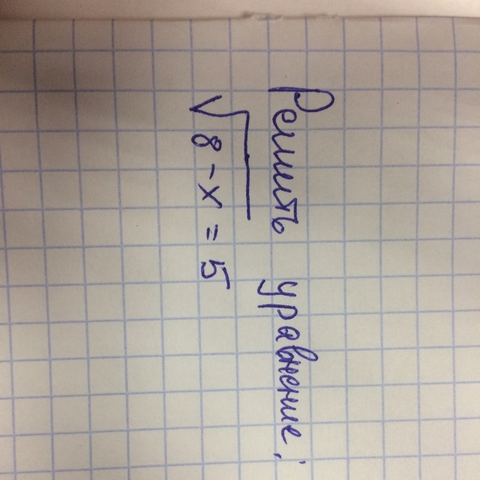 Решить уравнение:
√8 - x = 5